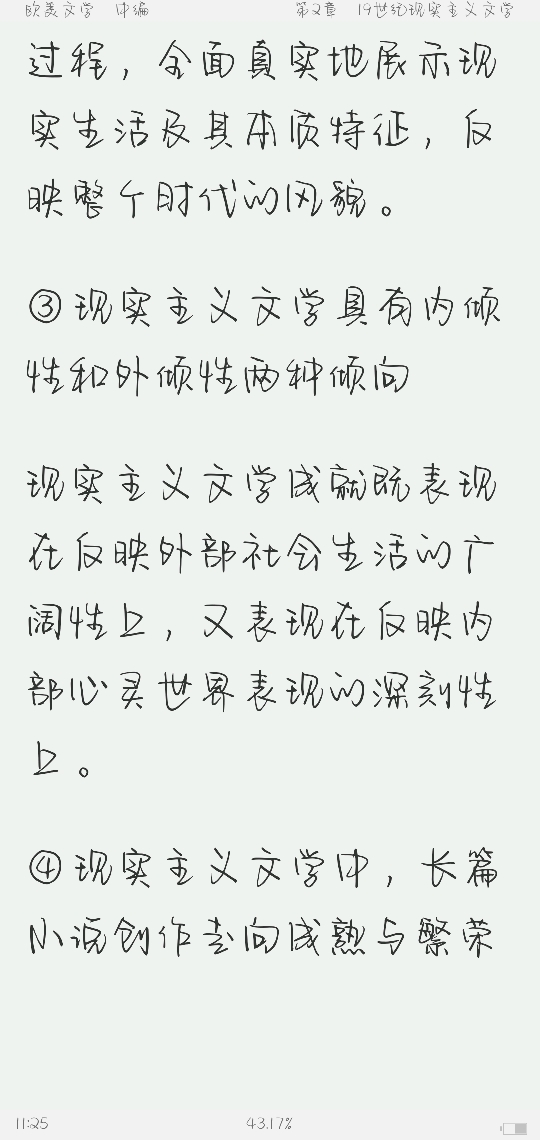 欧美文学 中编 第2章 19世纪现实主义文学
过程，全面真实地展示现
实生活及其本质特征，反
映整个时代的风貌。
③现实主义文学具有内倾
性和外倾性两种倾向
现实主义文学成就既表现
在反映外部社会生活的广
阔性上，又表现在反映内
部心灵世界表现的深刻性
上。
④现实主义文学中，长篇
小说创作走向成熟与繁荣
11:25 43.17%